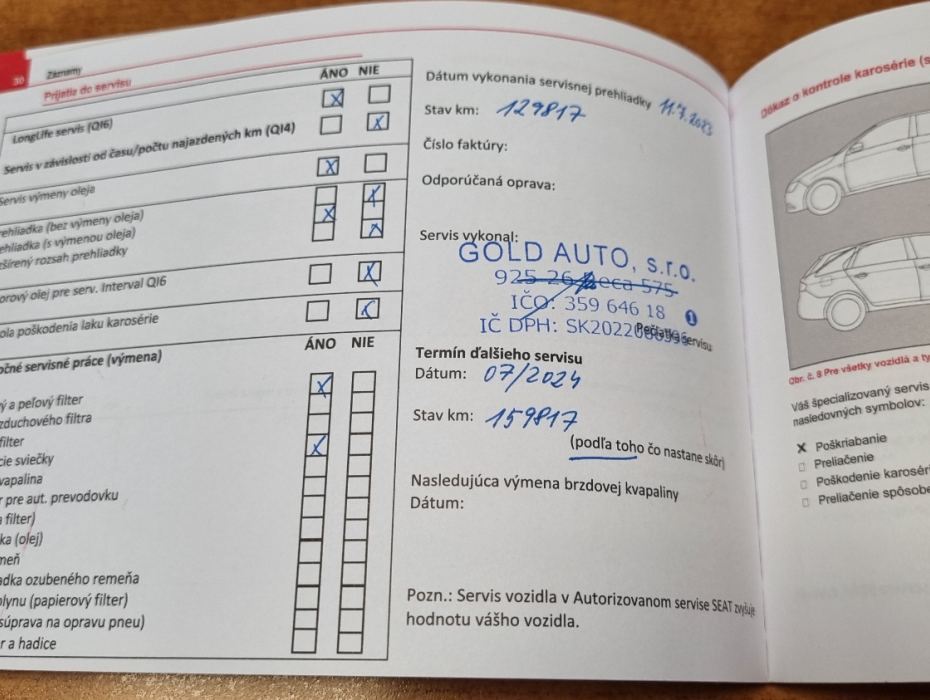 30
Záznamy
Prijatie do servisu
ÁNO NIE
LongLife servis (QI6)
Servis v závislosti od času/počtu najazdených km (QI4)
Servis výmeny oleja
rehliadka (bez výmeny oleja)
ehliadka (s výmenou oleja)
zšírený rozsah prehliadky
orový olej pre serv. Interval QI6
ola poškodenia laku karosérie
ÁNO NIE
očné servisné práce (výmena)
ý a peľový filter
zduchového filtra
filter
cie sviečky
vapalina
r pre aut. prevodovku
a filter)
ka (olej)
meň
adka ozubeného remeňa
plynu (papierový filter)
súprava na opravu pneu)
r a hadice
Dátum vykonania servisnej prehliadky 11.7.2023
Stav km: 129817
Číslo faktúry:
Odporúčaná oprava:
Servis vykonal:
GOLD AUTO, s.r.o.
925 26 Reca 575
IČO: 359 646 18
1
IČ DPH: SK2022
Pečiatka servisu
Termín ďalšieho servisu
Dátum: 07/2024
Stav km: 159817
(podľa toho čo nastane skôr)
Nasledujúca výmena brzdovej kvapaliny
Dátum:
Pozn.: Servis vozidla v Autorizovanom servise SEAT zvyšuje
hodnotu vášho vozidla.
Dôkaz o kontrole karosérie (s
Obr. č. 8 Pre všetky vozidlá a ty
Váš špecializovaný servis
nasledovných symbolov:
X Poškriabanie
Preliačenie
Poškodenie karoséri
Preliačenie spôsobe